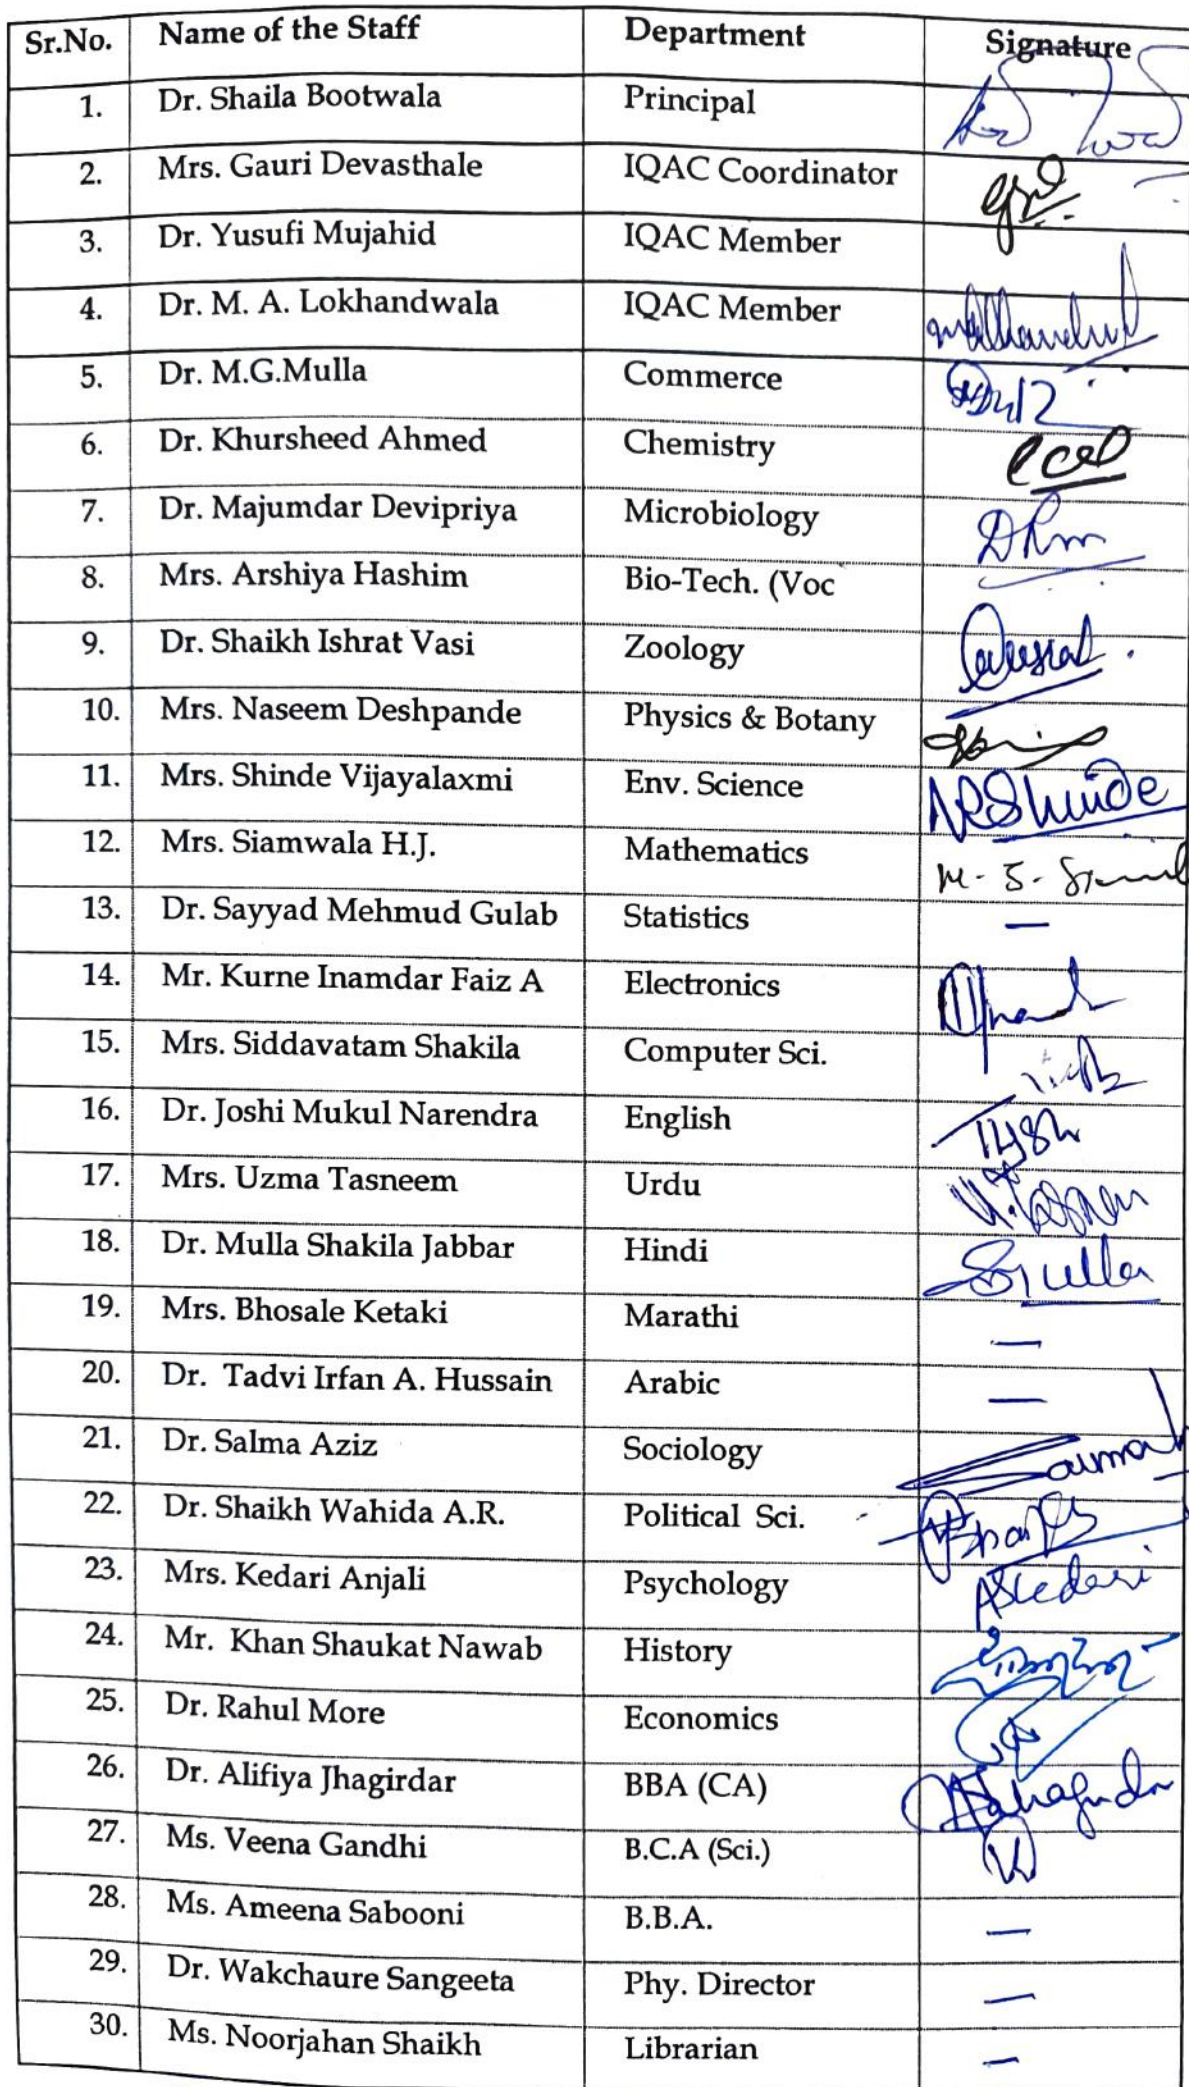 Sr.No. Name of the Staff Department Signature
1. Dr. Shaila Bootwala Principal
2. Mrs. Gauri Devasthale IQAC Coordinator
3. Dr. Yusufi Mujahid IQAC Member
4. Dr. M. A. Lokhandwala IQAC Member
5. Dr. M.G.Mulla Commerce
6. Dr. Khursheed Ahmed Chemistry
7. Dr. Majumdar Devipriya Microbiology
8. Mrs. Arshiya Hashim Bio-Tech. (Voc
9. Dr. Shaikh Ishrat Vasi Zoology
10. Mrs. Naseem Deshpande Physics & Botany
11. Mrs. Shinde Vijayalaxmi Env. Science
12. Mrs. Siamwala H.J. Mathematics
13. Dr. Sayyad Mehmud Gulab Statistics —
14. Mr. Kurne Inamdar Faiz A Electronics
15. Mrs. Siddavatam Shakila Computer Sci.
16. Dr. Joshi Mukul Narendra English
17. Mrs. Uzma Tasneem Urdu
18. Dr. Mulla Shakila Jabbar Hindi
19. Mrs. Bhosale Ketaki Marathi —
20. Dr. Tadvi Irfan A. Hussain Arabic —
21. Dr. Salma Aziz Sociology
22. Dr. Shaikh Wahida A.R. Political Sci.
23. Mrs. Kedari Anjali Psychology
24. Mr. Khan Shaukat Nawab History
25. Dr. Rahul More Economics
26. Dr. Alifiya Jhagirdar BBA (CA)
27. Ms. Veena Gandhi B.C.A (Sci.)
28. Ms. Ameena Sabooni B.B.A. —
29. Dr. Wakchaure Sangeeta Phy. Director —
30. Ms. Noorjahan Shaikh Librarian —